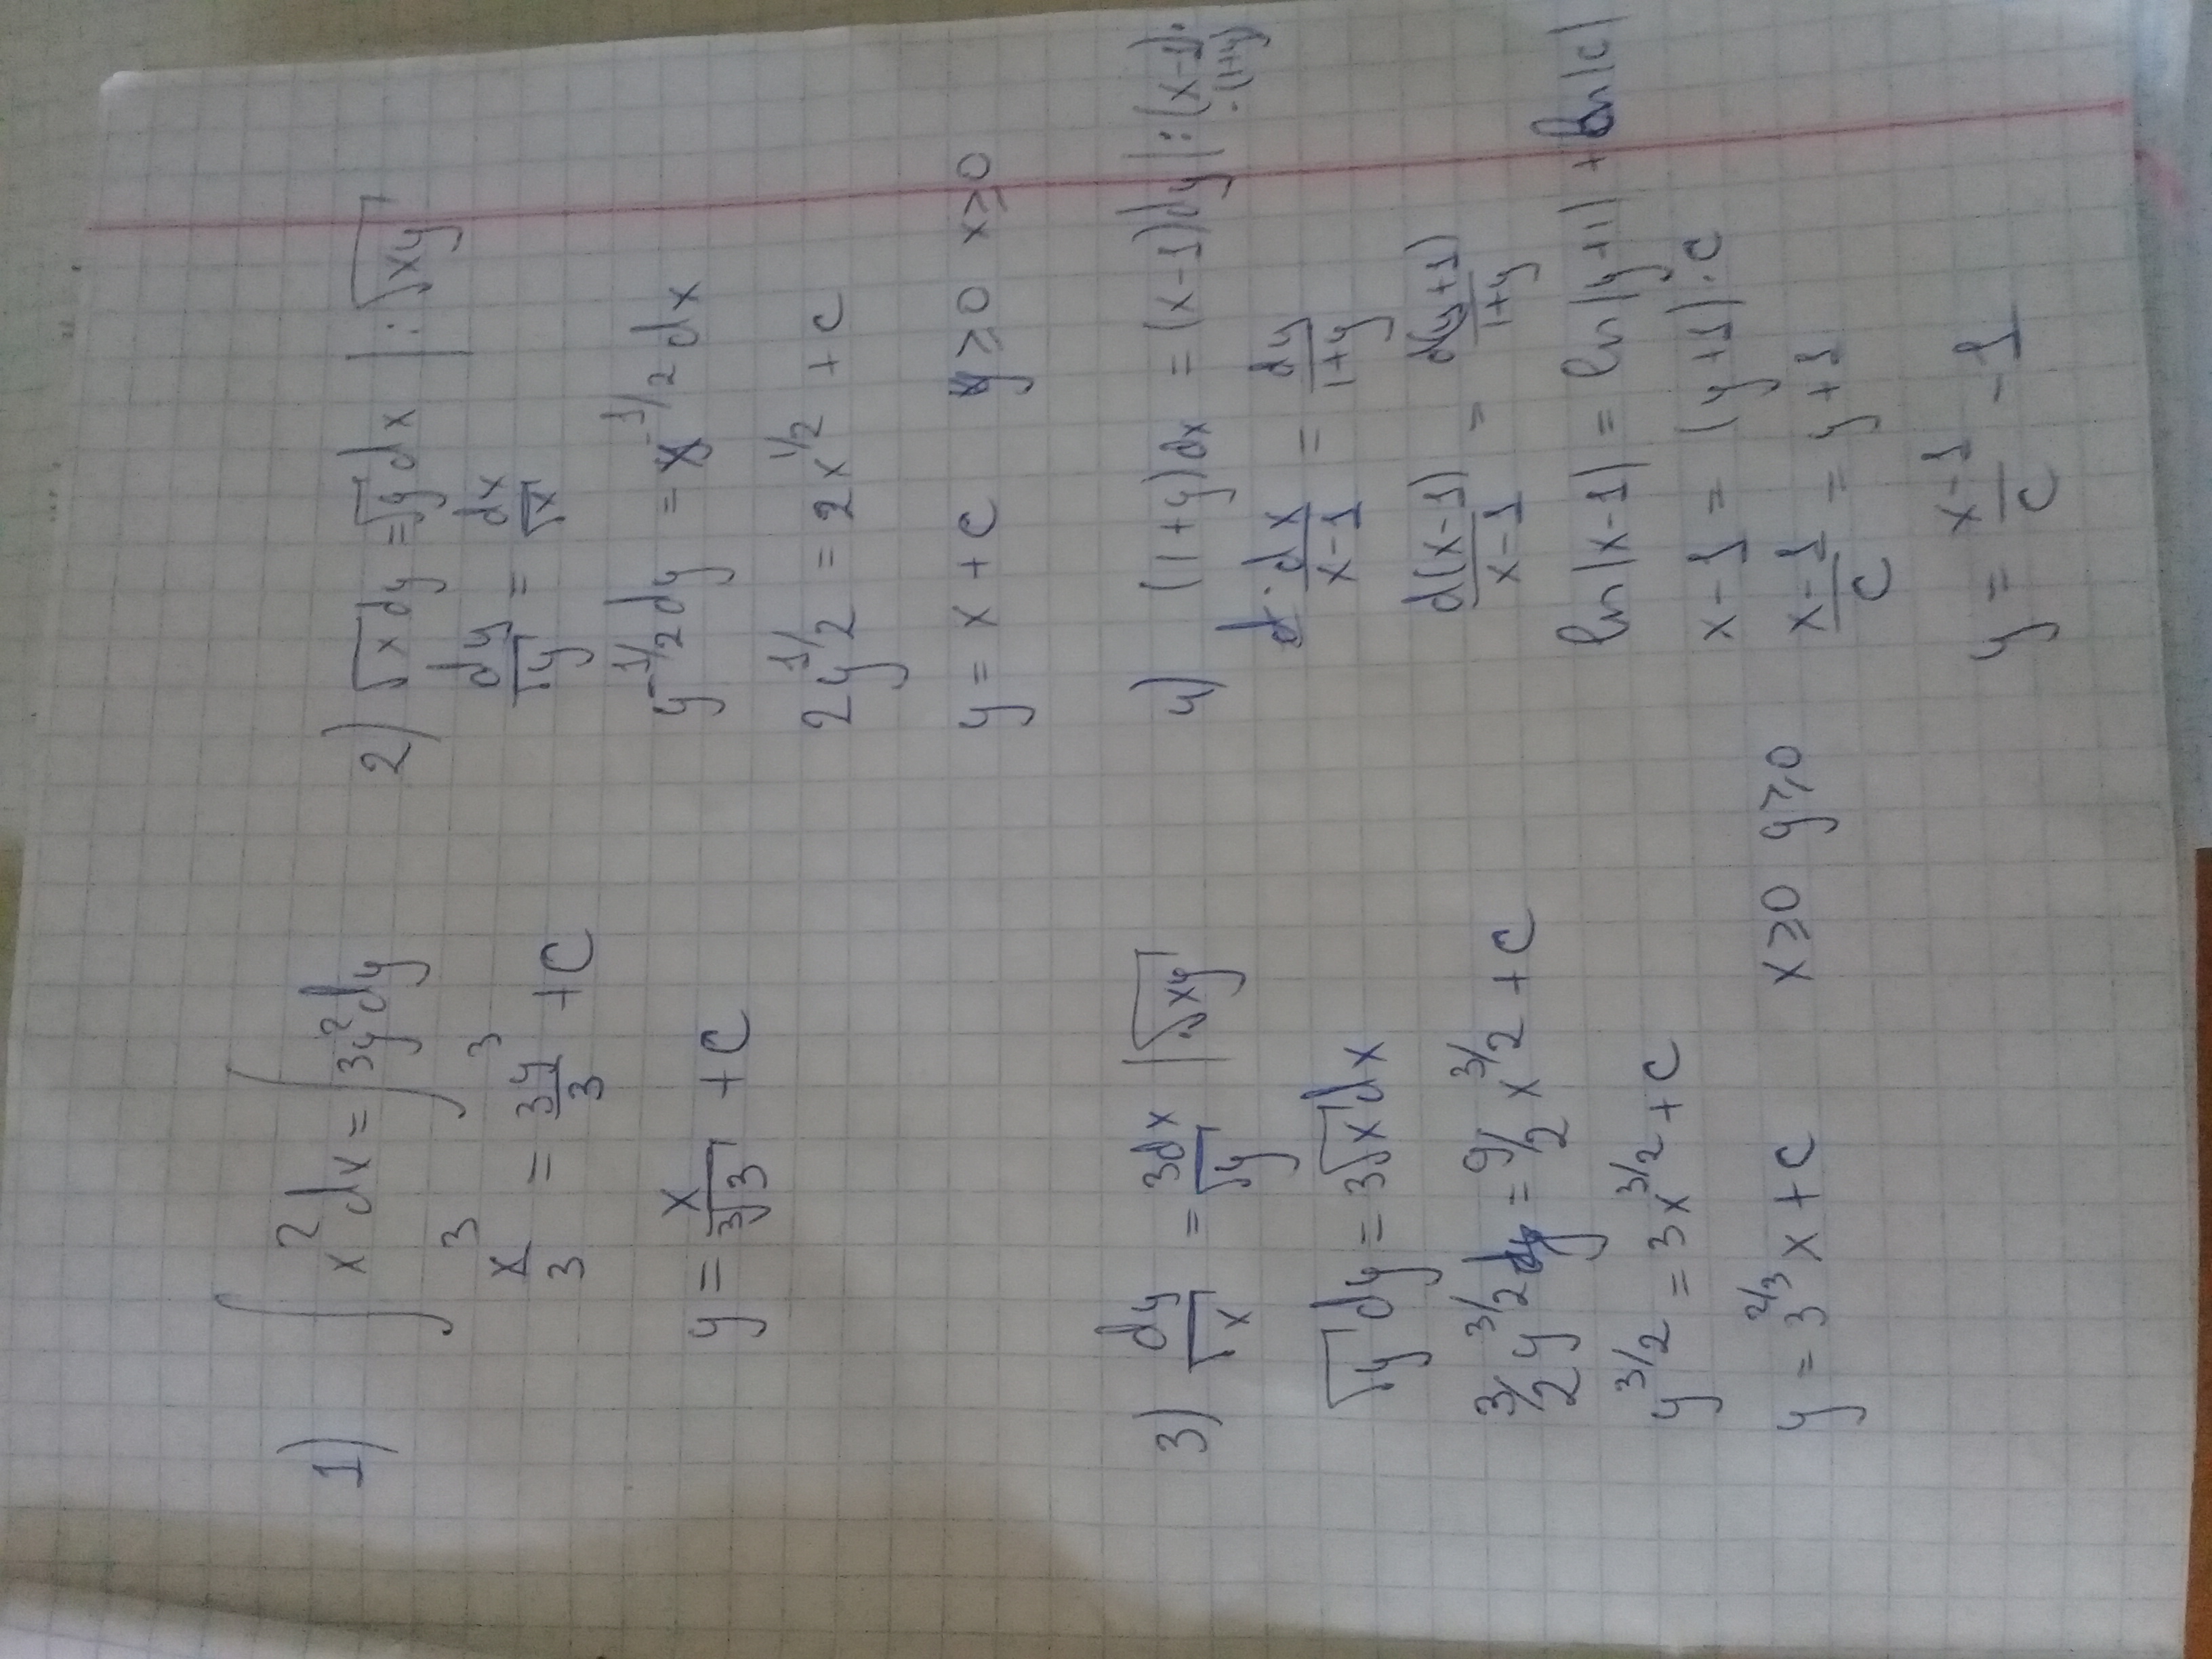 1) ∫x²dx = ∫3y²dy
x³/3 = 3y³/3 + C
y = x/∛3 + C
2) √x dy = √y dx | : √xy
dy/√y = dx/√x
y^-1/2 dy = x^-1/2 dx
2y^1/2 = 2x^1/2 + C
y = x + C y ⩾ 0 x ⩾ 0
3) dy/√x = 3dx/√y | √xy
√y dy = 3√x dx
3/2 y^3/2 dy = 9/2 x^3/2 + C
y^3/2 = 3x^3/2 + C
y = 3^2/3 x + C x ⩾ 0 y ⩾ 0
4) (1+y)dx = (x-1)dy | : (x-1)·
·(1+y)
dx/x-1 = dy/1+y
d(x-1)/x-1 = d(y+1)/1+y
ln|x-1| = ln|y+1| + ln|C|
x-1 = (y+1)·C
x-1/C = y+1
y = x-1/C -1